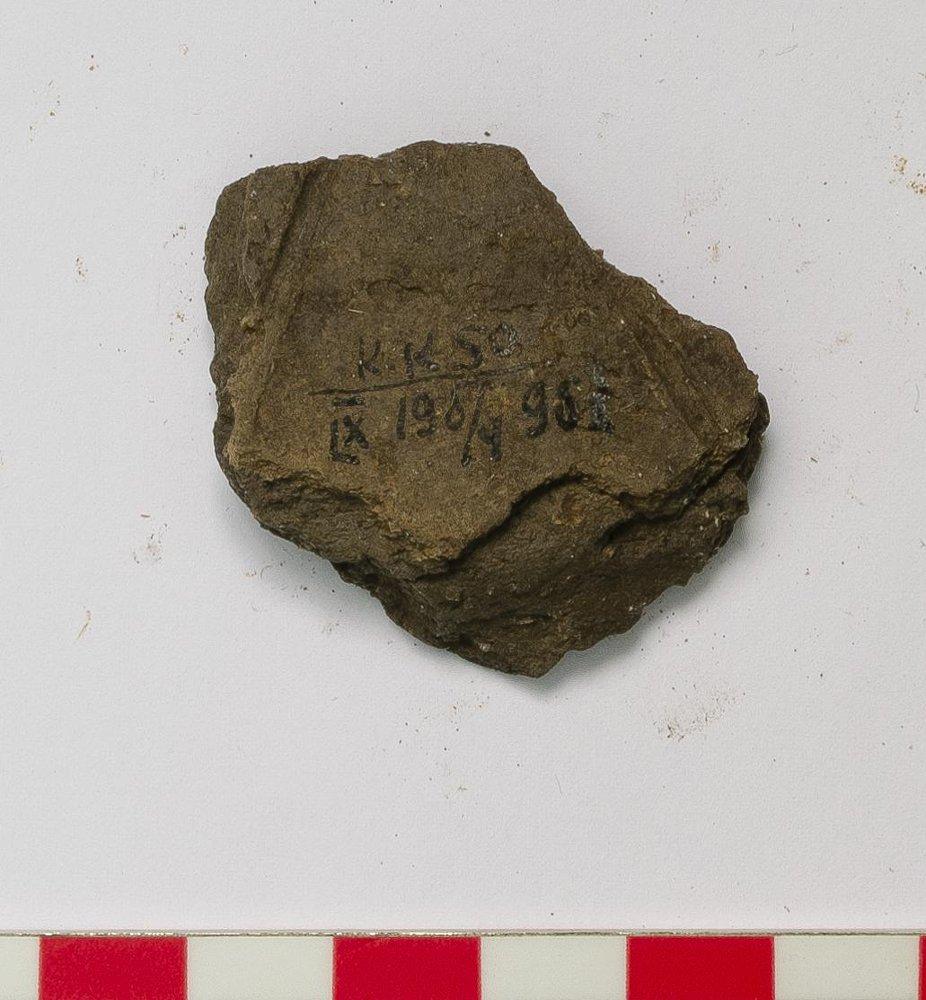 K.K 50
IX 196/4 981